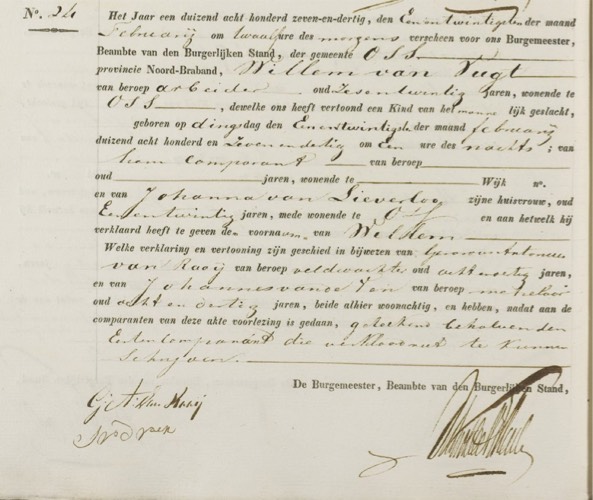 No. 24
Het Jaar een duizend acht honderd zeven-en-dertig, den Eenentwintigsten der maand
Februarij om twaalf ure des morgens verscheen voor ons Burgemeester,
Beambte van den Burgerlijken Stand, der gemeente OSS
provincie Noord-Braband, Willem van Vugt
van beroep arbeider oud zesentwintig jaren, wonende te
OSS, dewelke ons heeft vertoond een Kind van het manne lijk geslacht,
geboren op dingsdag den Eenentwintigste der maand februarij
duizend acht honderd en Zevenendertig om Een ure des nachts; van
hem Comparant van beroep
oud jaren, wonende te Wijk no.
en van Johanna van Lieverloo zijne huisvrouw, oud
Eenentwintig jaren, mede wonende te Oss en aan hetwelk hij
verklaard heeft te geven den voornaam van Wilhem
Welke verklaring en vertooning zijn geschied in bijwezen van Antonius
van Raaij van beroep veldwachter oud jaren,
en van Johannes van beroep
oud acht en dertig jaren, beide alhier woonachtig, en hebben, nadat aan de
comparanten van deze akte voorlezing is gedaan, geteekend behalven den
Eersten Comparant die verklaarde niet te kunnen
Schrijven
De Burgemeester, Beambte van den Burgerlijken Stand,
G. A. van Raaij